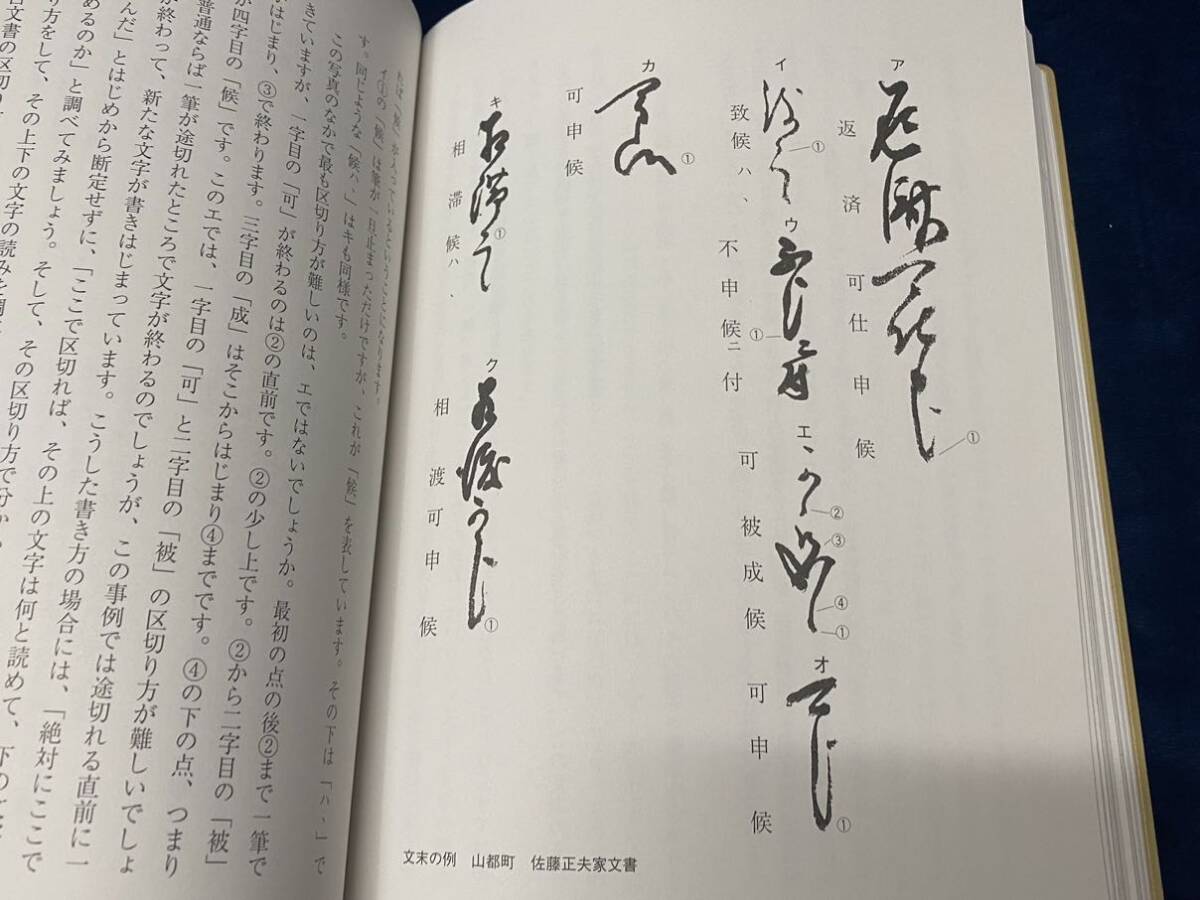 ア
返済可仕申候
①
イ
致候ハ、
①
ウ
不申候ニ付
①
エ
可被成候
②
③
④
①
オ
可申候
①
カ
可申候
①
キ
相滞候ハ、
①
ク
相渡可申候
①
文末の例　山都町　佐藤正夫家文書
イ①の「候」は筆が一旦止まっただけですが、これが「候」を表しています。その下は「ハ、」で
す。同じような「候ハ、」はキも同様です。
この写真のなかで最も区切り方が難しいのは、エではないでしょうか。最初の点の後②まで一筆で
きていますが、一字目の「可」が終わるのは②の直前です。②の少し上です。②から二字目の「被」
がはじまり、③で終わります。三字目の「成」はそこからはじまり④までです。④の下の点、つまり
が四字目の「候」です。このエでは、一字目の「可」と二字目の「被」の区切り方が難しいでしょ
普通ならば一筆が途切れたところで文字が終わるのでしょうが、この事例では途切れる直前に一
が終わって、新たな文字が書きはじまっています。こうした書き方の場合には、「絶対にここで
んだ」とはじめから断定せずに、「ここで区切れば、その上の文字は何と読めて、下の
めるのか」と調べてみましょう。そして、その区切り方で分か
り方をして、その上下の文字の読みを
文書の区切り